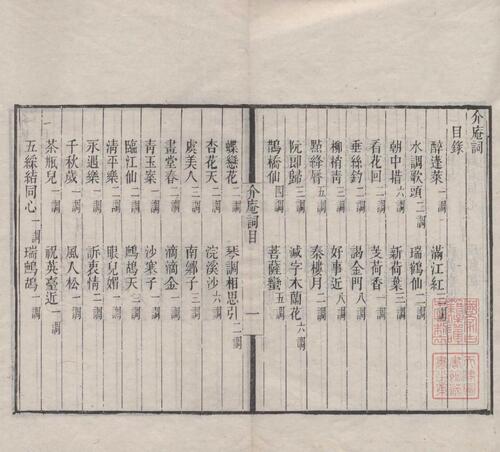 介庵詞
目錄
醉蓬萊一調　滿江紅一調
水調歌頭三調　瑞鶴仙二調
朝中措六調　新荷葉三調
看花回二調　芰荷香一調
垂絲釣一調　謁金門八調
柳梢青三調　好事近八調
點絳唇五調　秦樓月二調
阮郎歸三調　減字木蘭花六調
鵲橋仙四調　菩薩蠻五調
介庵詞目　一
蝶戀花二調　琴調相思引二調
杏花天二調　浣溪沙六調
虞美人三調　南鄉子三調
畫堂春二調　滴滴金一調
青玉案一調　沙塞子一調
臨江仙二調　鷓鴣天三調
清平樂二調　眼兒媚一調
永遇樂一調　訴衷情二調
千秋歲一調　風入松一調
茶瓶兒一調　祝英臺近一調
五綵結同心一調　瑞鷓鴣一調